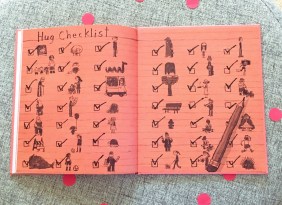 Hug Checklist